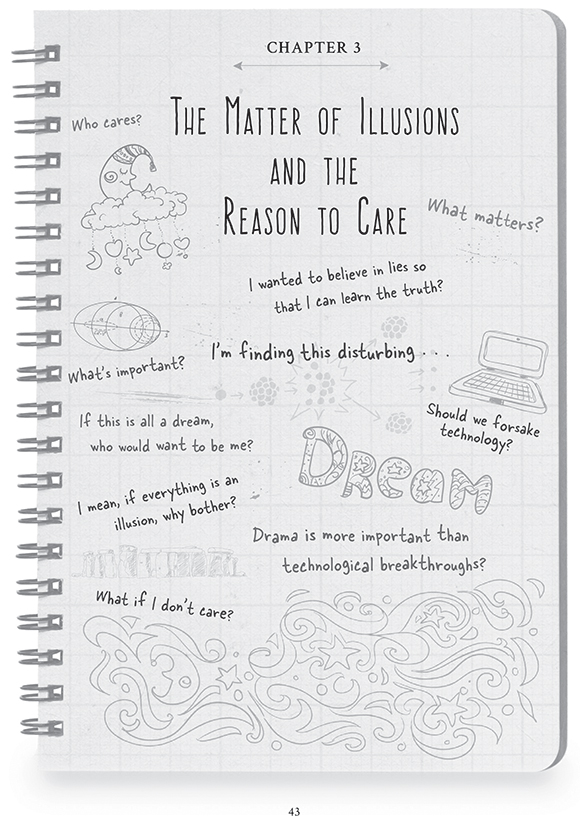 CHAPTER 3
Who cares?
THE MATTER OF ILLUSIONS
AND THE
REASON TO CARE
What matters?
I wanted to believe in lies so
that I can learn the truth?
I'm finding this disturbing . . .
What's important?
Should we forsake
technology?
If this is all a dream,
who would want to be me?
DReaM
I mean, if everything is an
illusion, why bother?
Drama is more important than
technological breakthroughs?
What if I don't care?
43